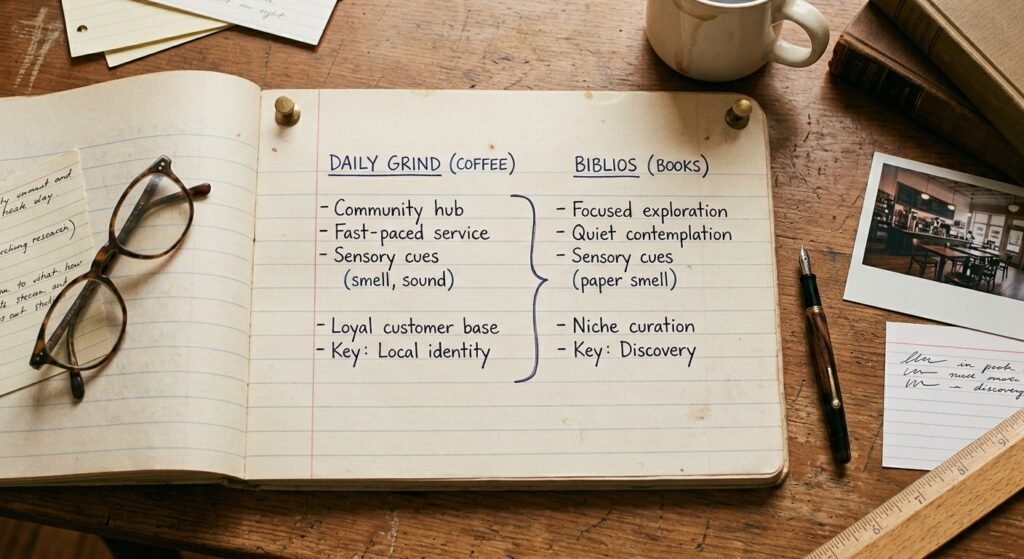 DAILY GRIND (COFFEE)
- Community hub
- Fast-paced service
- Sensory cues
(smell, sound)
- Loyal customer base
- Key: Local identity
BIBLIOS (BOOKS)
- Focused exploration
- Quiet contemplation
- Sensory cues
(paper smell)
- Niche curation
- Key: Discovery
and
research)
to what how
in
discovery